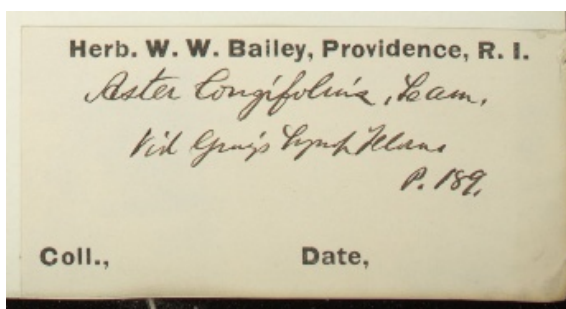 Herb. W. W. Bailey, Providence, R. I.
Aster longifolius, Lam.
Vid Gray's Synop Flora
P. 189.
Coll., Date,